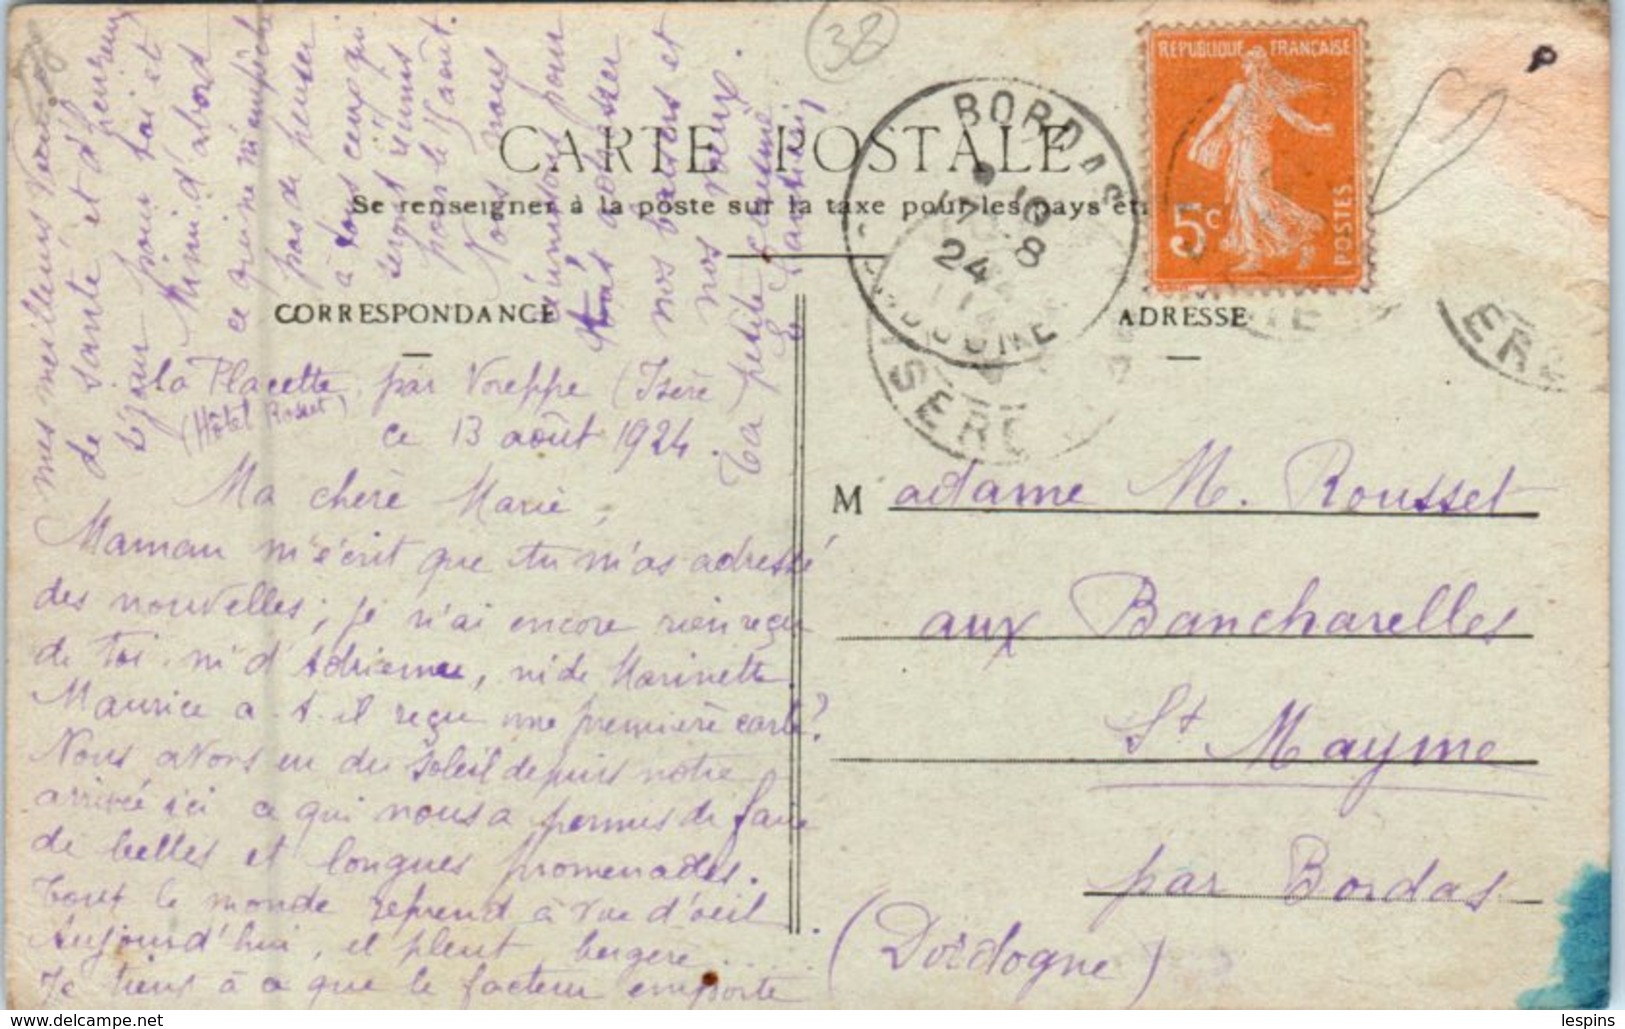 CARTE POSTALE
Se renseigner à la poste sur la taxe pour les pays
CORRESPONDANCE
ADRESSE
REPUBLIQUE FRANÇAISE
5c
POSTES
BORDAS
24
8
ISERE
ERE
38
P
La Placette, par Voreppe (Isère)
(Hôtel Rosset)
ce 13 août 1924.
Ma chère Marie,
Maman m'écrit que tu m'as adressé
des nouvelles; je n'ai encore rien reçu
de toi, ni d'Adrienne, ni de Marinette.
Maurice a-t-il reçu une première carte?
Nous avons eu du soleil depuis notre
arrivée ici ce qui nous a permis de faire
de belles et longues promenades.
Tout le monde reprend à vue d'oeil.
Aujourd'hui, il pleut bergère.....
Je tiens à ce que le facteur emporte
mes meilleurs voeux
de santé et d'heureux
séjour pour toi et
Mimi d'abord
ce qui ne m'empêche
pas de penser
à tous ceux qui
seront réunis
pour le 15 août.
Nous nous
réunissons pour
t'adresser
nos baisers et
nos voeux.
Ta petite cousine
M adame M. Rousset
aux Bancharelles
St Mayme
par Bordas
(Dordogne)
lespins